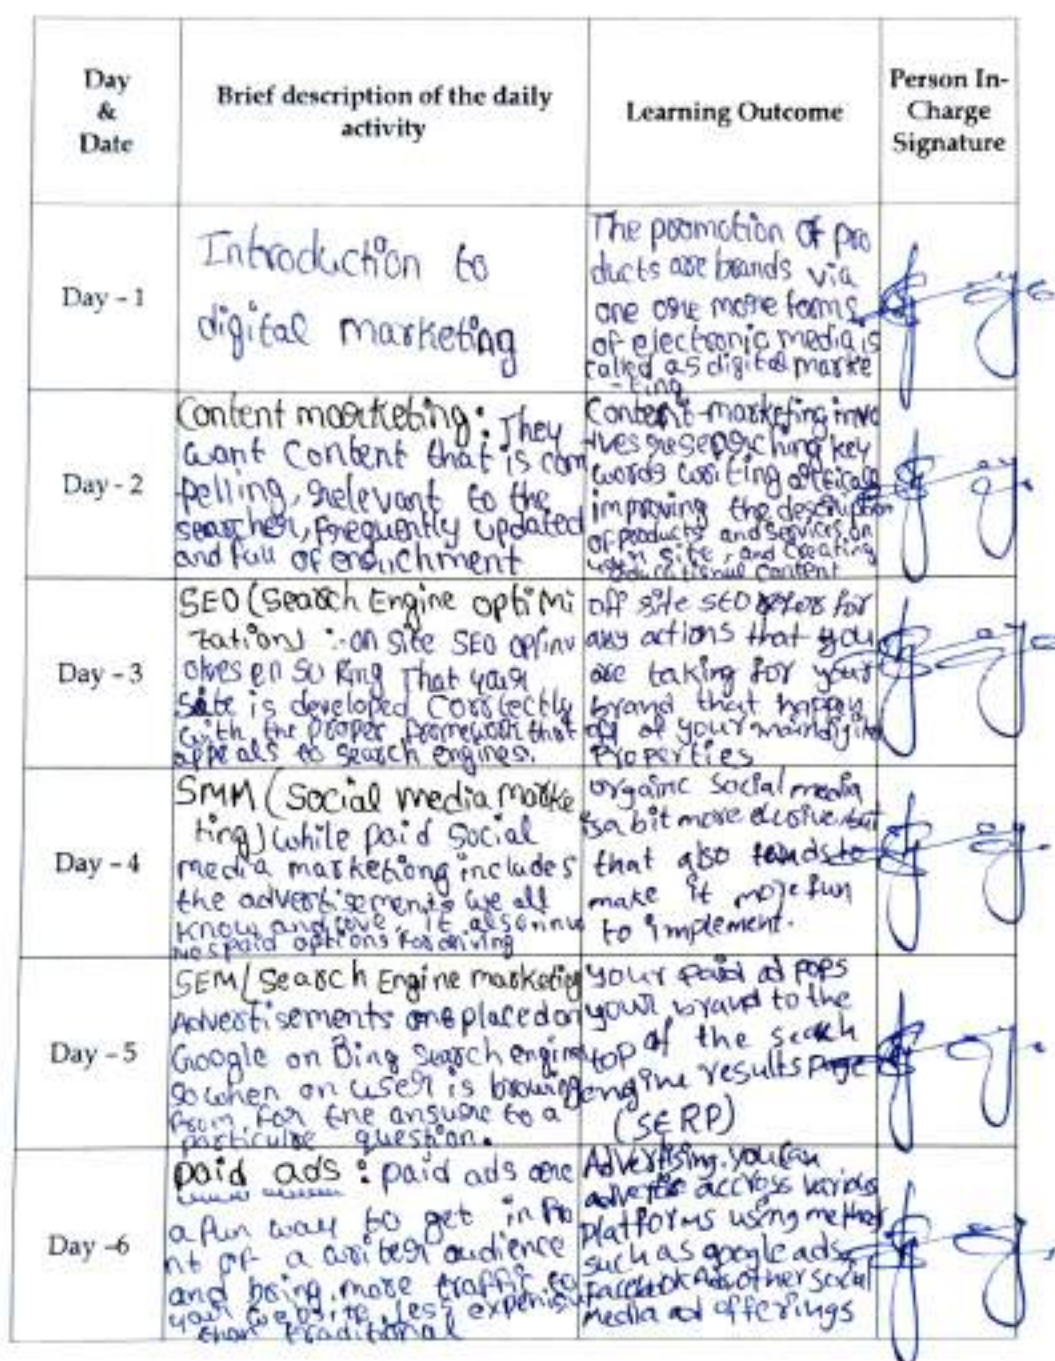 Day
&
Date
Brief description of the daily
activity
Learning Outcome
Person In-
Charge
Signature
Day - 1
Introduction to
digital marketing
The promotion of pro
ducts are brands via
one ore more forms
of electronic media is
called as digital marke
-ting
Day - 2
Content marketing : They
want Content that is com
pelling, relevant to the
searcher, frequently updated
and full of enrichment
Content marketing invo
lves researching key
words writing
improving the description
of products and services on
site, and creating
educational content
Day - 3
SEO (Search Engine optimi
zation) :- on site SEO
That your
Site is developed correctly
with the proper framework that
appeals to search engines.
off site SEO refers for
any actions that you
are taking for your
brand that happen
off of your main
Properties
Day - 4
SMM (Social media marke
ting) while paid social
media marketiong includes
the advertisements we all
know and love, it also
paid options for driving
organic social media
is a bit more but
that also tends to
make it more fun
to implement.
Day - 5
SEM (Search Engine marketing
Advertisements are placed on
Google on Bing search engine
so when on user is browing
from, for the answre to a
particular question.
your paid ad pops
your brand to the
top of the search
engine results page
(SERP)
Day -6
paid ads : paid ads are
a fun way to get in fro
nt of a audience
and bring more traffic to
your website, less
than traditional
Advertising. you can
accross various
platforms using
such as google ads,
Facebook Ads other social
media ad offerings